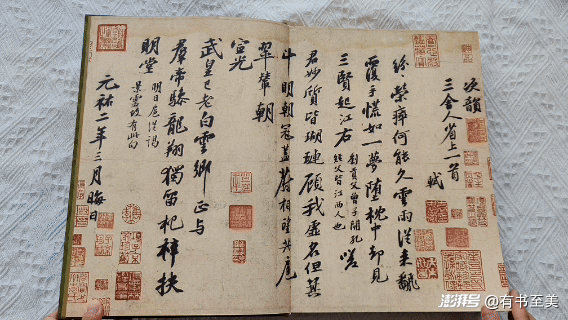 次韻
三舍人省上一首
軾
紛榮瘁何能久雲雨從來翻
覆手怳如一夢墮枕中却見
三賢起江右
劉貢父曾子開孔
經父皆江西人也
嗟
君妙質皆瑚璉顧我虛名但箕
斗明朝冠蓋蔚相望共扈
翠輦朝
宣光
武皇已老白雲鄉正與
羣帝驂龍翔獨留杞梓扶
明堂
明日扈從謁
景靈故有此句
元祐二年三月晦日
澎湃号@有书至美